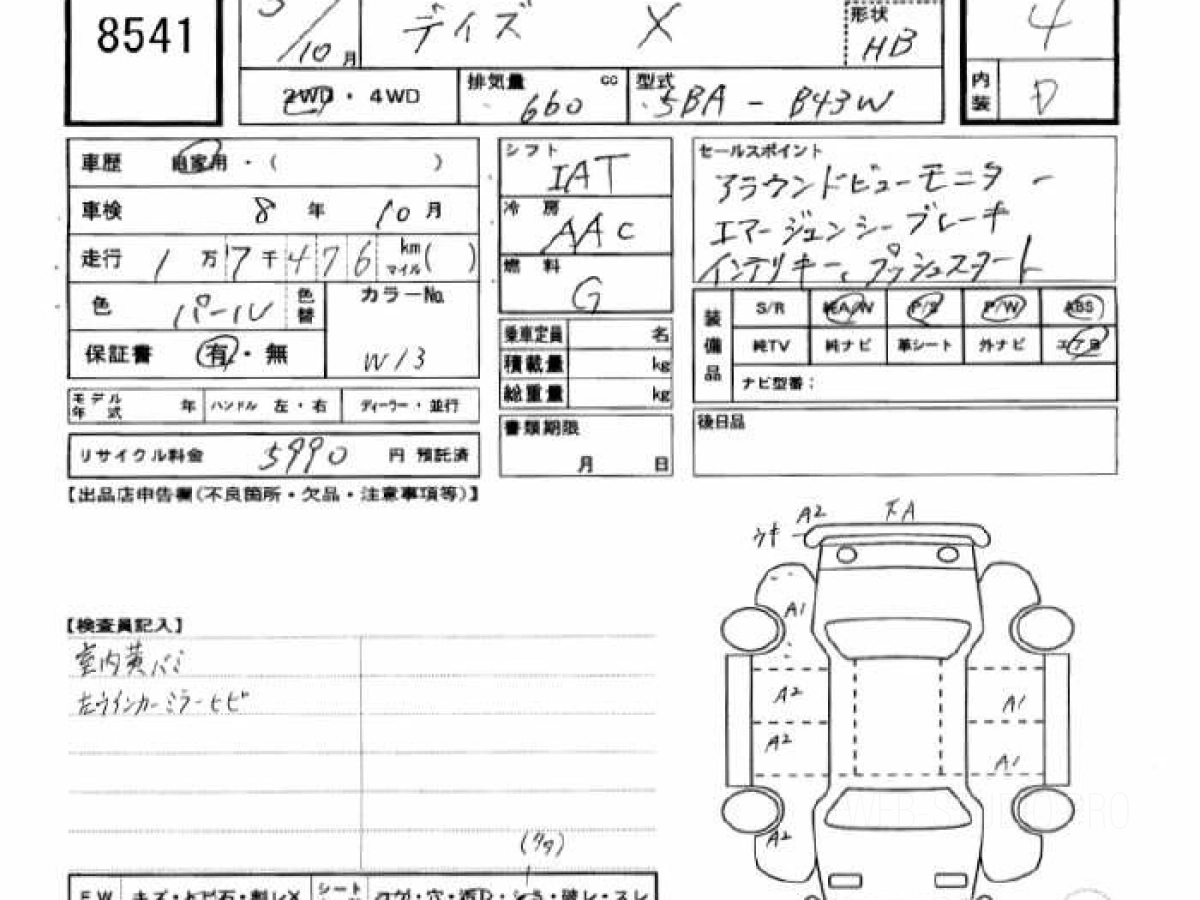 8541
/10月 デイズ X 形状 HB 4
2WD・4WD 排気量 660 cc 型式 5BA - B43W 内装 D
車歴 自家用・( )
車検 8年 10月
走行 1万7千476 km マイル( )
色 パール 色替 カラーNo. W13
保証書 有・無
モデル年式 年 ハンドル 左・右 ディーラー・並行
リサイクル料金 5990 円 預託済
シフト IAT
冷房 AAC
燃料 G
乗車定員 名
積載量 kg
総重量 kg
書類期限 月 日
セールスポイント
アラウンドビューモニター
エマージェンシーブレーキ
インテリキー、プッシュスタート
装備品 S/R 純A/W P/S P/W ABS
純TV 純ナビ 革シート 外ナビ エアB
ナビ型番:
後日品
【出品店申告欄(不良箇所・欠品・注意事項等)】
【検査員記入】
室内黄バミ
左ウインカーミラーヒビ
ウキ A2 下A
A1
A2 A1
A2 A1
A2
(タタ)
シート
WEB-S